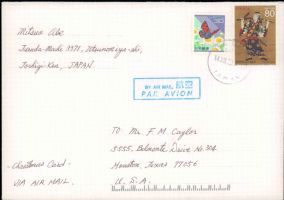 Mitsuo Abe
Tanda-Machi 3971, Utsunomiya-shi,
Tochigi-Ken, JAPAN
30
80
BY AIR MAIL 航空
PAR AVION
JAPAN
TO Mr. F. M. Caylor
5555, Belmonte Drive No. 304
Houston, Texas 77056
U. S. A.
-Christmas Card-
VIA AIR MAIL.